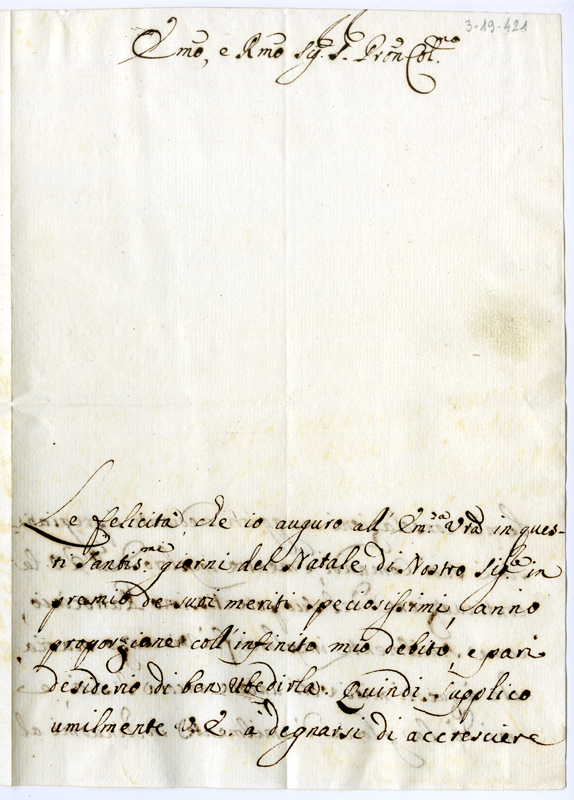 3-19-421
Emõ, e Rmõ Sig.r P.ron Col.mo
Le felicità, che io auguro all' Em.za Vrã in ques-
ti Santis.mi giorni del Natale di Nostro Sig.re in
premio de suoi meriti speciosissimi, anno
proporzione coll' infinito mio debito, e pari
desiderio di ben Ubedirla. Quindi supplico
umilmente V. E. a degnarsi di accrescere